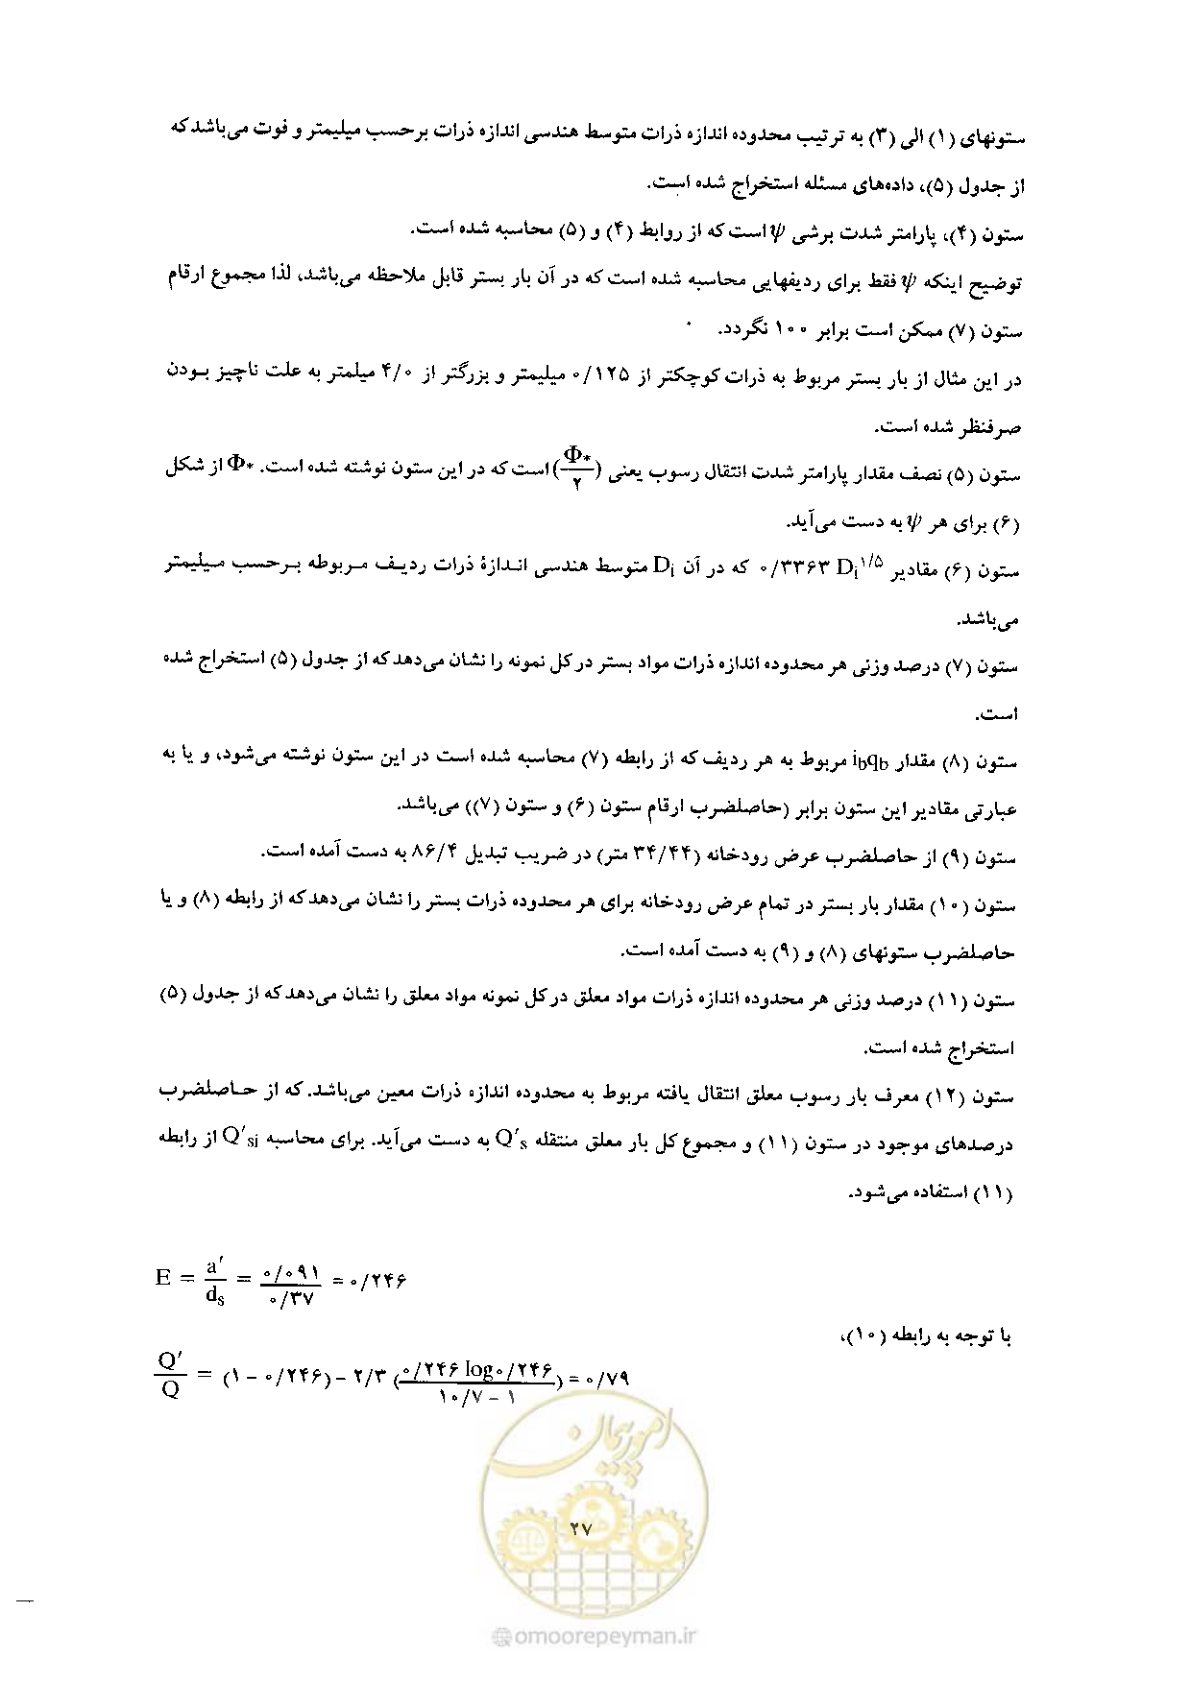 ستونهای (۱) الی (۳) به ترتیب محدوده اندازه ذرات متوسط هندسی اندازه ذرات برحسب میلیمتر و فوت می‌باشد که
از جدول (۵)، داده‌های مسئله استخراج شده است.
ستون (۴)، پارامتر شدت برشی ψ است که از روابط (۴) و (۵) محاسبه شده است.
توضیح اینکه ψ فقط برای ردیفهایی محاسبه شده است که در آن بار بستر قابل ملاحظه می‌باشد، لذا مجموع ارقام
ستون (۷) ممکن است برابر ۱۰۰ نگردد.
در این مثال از بار بستر مربوط به ذرات کوچکتر از ۰/۱۲۵ میلیمتر و بزرگتر از ۴/۰ میلمتر به علت ناچیز بودن
صرفنظر شده است.
ستون (۵) نصف مقدار پارامتر شدت انتقال رسوب یعنی (Φ*/۲) است که در این ستون نوشته شده است. Φ* از شکل
(۶) برای هر ψ به دست می‌آید.
ستون (۶) مقادیر ۰/۳۳۶۳ Di^۱/۵ که در آن Di متوسط هندسی اندازهٔ ذرات ردیف مربوطه برحسب میلیمتر
می‌باشد.
ستون (۷) درصد وزنی هر محدوده اندازه ذرات مواد بستر در کل نمونه را نشان می‌دهد که از جدول (۵) استخراج شده
است.
ستون (۸) مقدار ibqb مربوط به هر ردیف که از رابطه (۷) محاسبه شده است در این ستون نوشته می‌شود، و یا به
عبارتی مقادیر این ستون برابر (حاصلضرب ارقام ستون (۶) و ستون (۷)) می‌باشد.
ستون (۹) از حاصلضرب عرض رودخانه (۳۴/۴۴ متر) در ضریب تبدیل ۸۶/۴ به دست آمده است.
ستون (۱۰) مقدار بار بستر در تمام عرض رودخانه برای هر محدوده ذرات بستر را نشان می‌دهد که از رابطه (۸) و یا
حاصلضرب ستونهای (۸) و (۹) به دست آمده است.
ستون (۱۱) درصد وزنی هر محدوده اندازه ذرات مواد معلق در کل نمونه مواد معلق را نشان می‌دهد که از جدول (۵)
استخراج شده است.
ستون (۱۲) معرف بار رسوب معلق انتقال یافته مربوط به محدوده اندازه ذرات معین می‌باشد. که از حاصلضرب
درصدهای موجود در ستون (۱۱) و مجموع کل بار معلق منتقله Q's به دست می‌آید. برای محاسبه Q'si از رابطه
(۱۱) استفاده می‌شود.
E = a'/ds = ۰/۰۹۱ / ۰/۳۷ = ۰/۲۴۶
با توجه به رابطه (۱۰)،
Q'/Q = (۱ - ۰/۲۴۶) - ۲/۳ (۰/۲۴۶ log۰/۲۴۶ / ۱۰/۷ - ۱) = ۰/۷۹
امور پیمان
۲۷
@omoorepeyman.ir